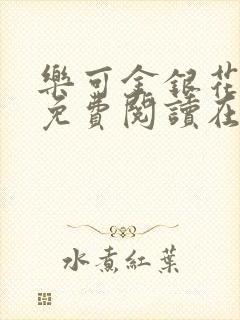 樂可金銀花
免費閱讀在
水煮紅葉